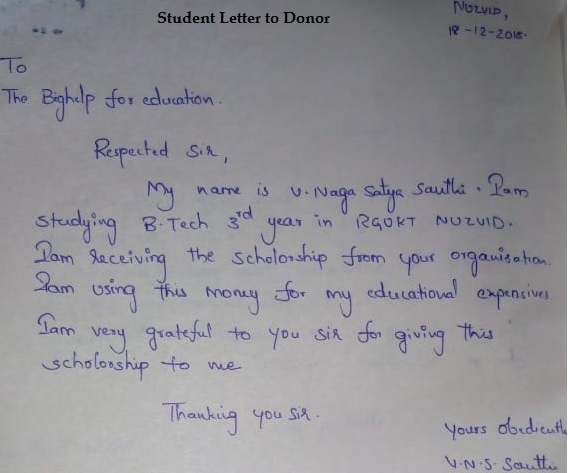 Student Letter to Donor
NUZVID,
18-12-2018.
To
The Bighelp for education.
Respected Sir,
My name is V. Naga Satya Santhi. I am
studying B.Tech 3rd year in RGUKT NUZVID.
I am receiving the scholorship from your organisation.
I am using this money for my educational expensives
I am very grateful to you sir for giving this
scholorship to me
Thanking you sir.
yours obedient
V.N.S. Santhi